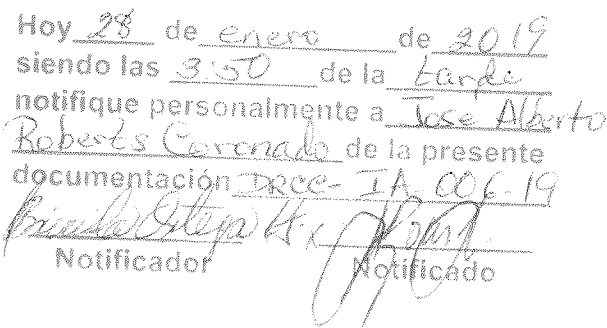 Hoy 28 de enero de 2019
siendo las 3:50 de la tarde
notifique personalmente a Jose Alberto
Roberts Coronado de la presente
documentación DRCC-IA-006-19
Notificador Notificado